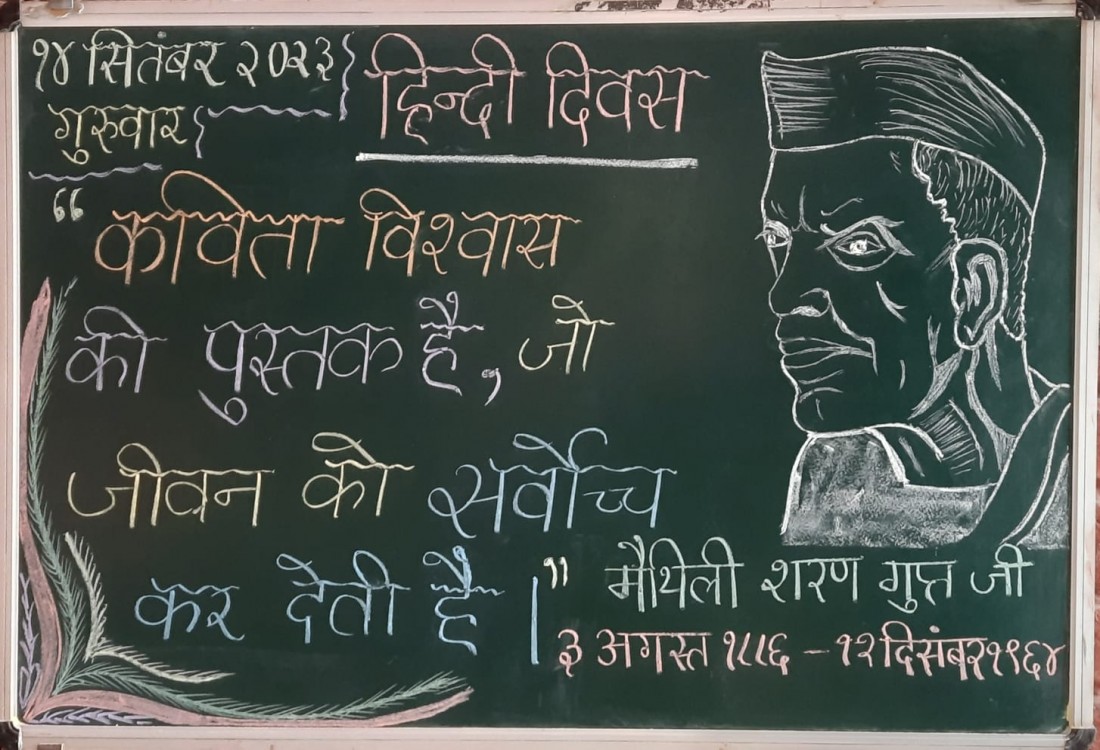 १४ सितंबर २०२३
गुरुवार
हिन्दी दिवस
“कविता विश्वास
की पुस्तक है, जो
जीवन को सर्वोच्च
कर देती है।”
मैथिली शरण गुप्त जी
३ अगस्त १८८६ – १२ दिसंबर १९६४